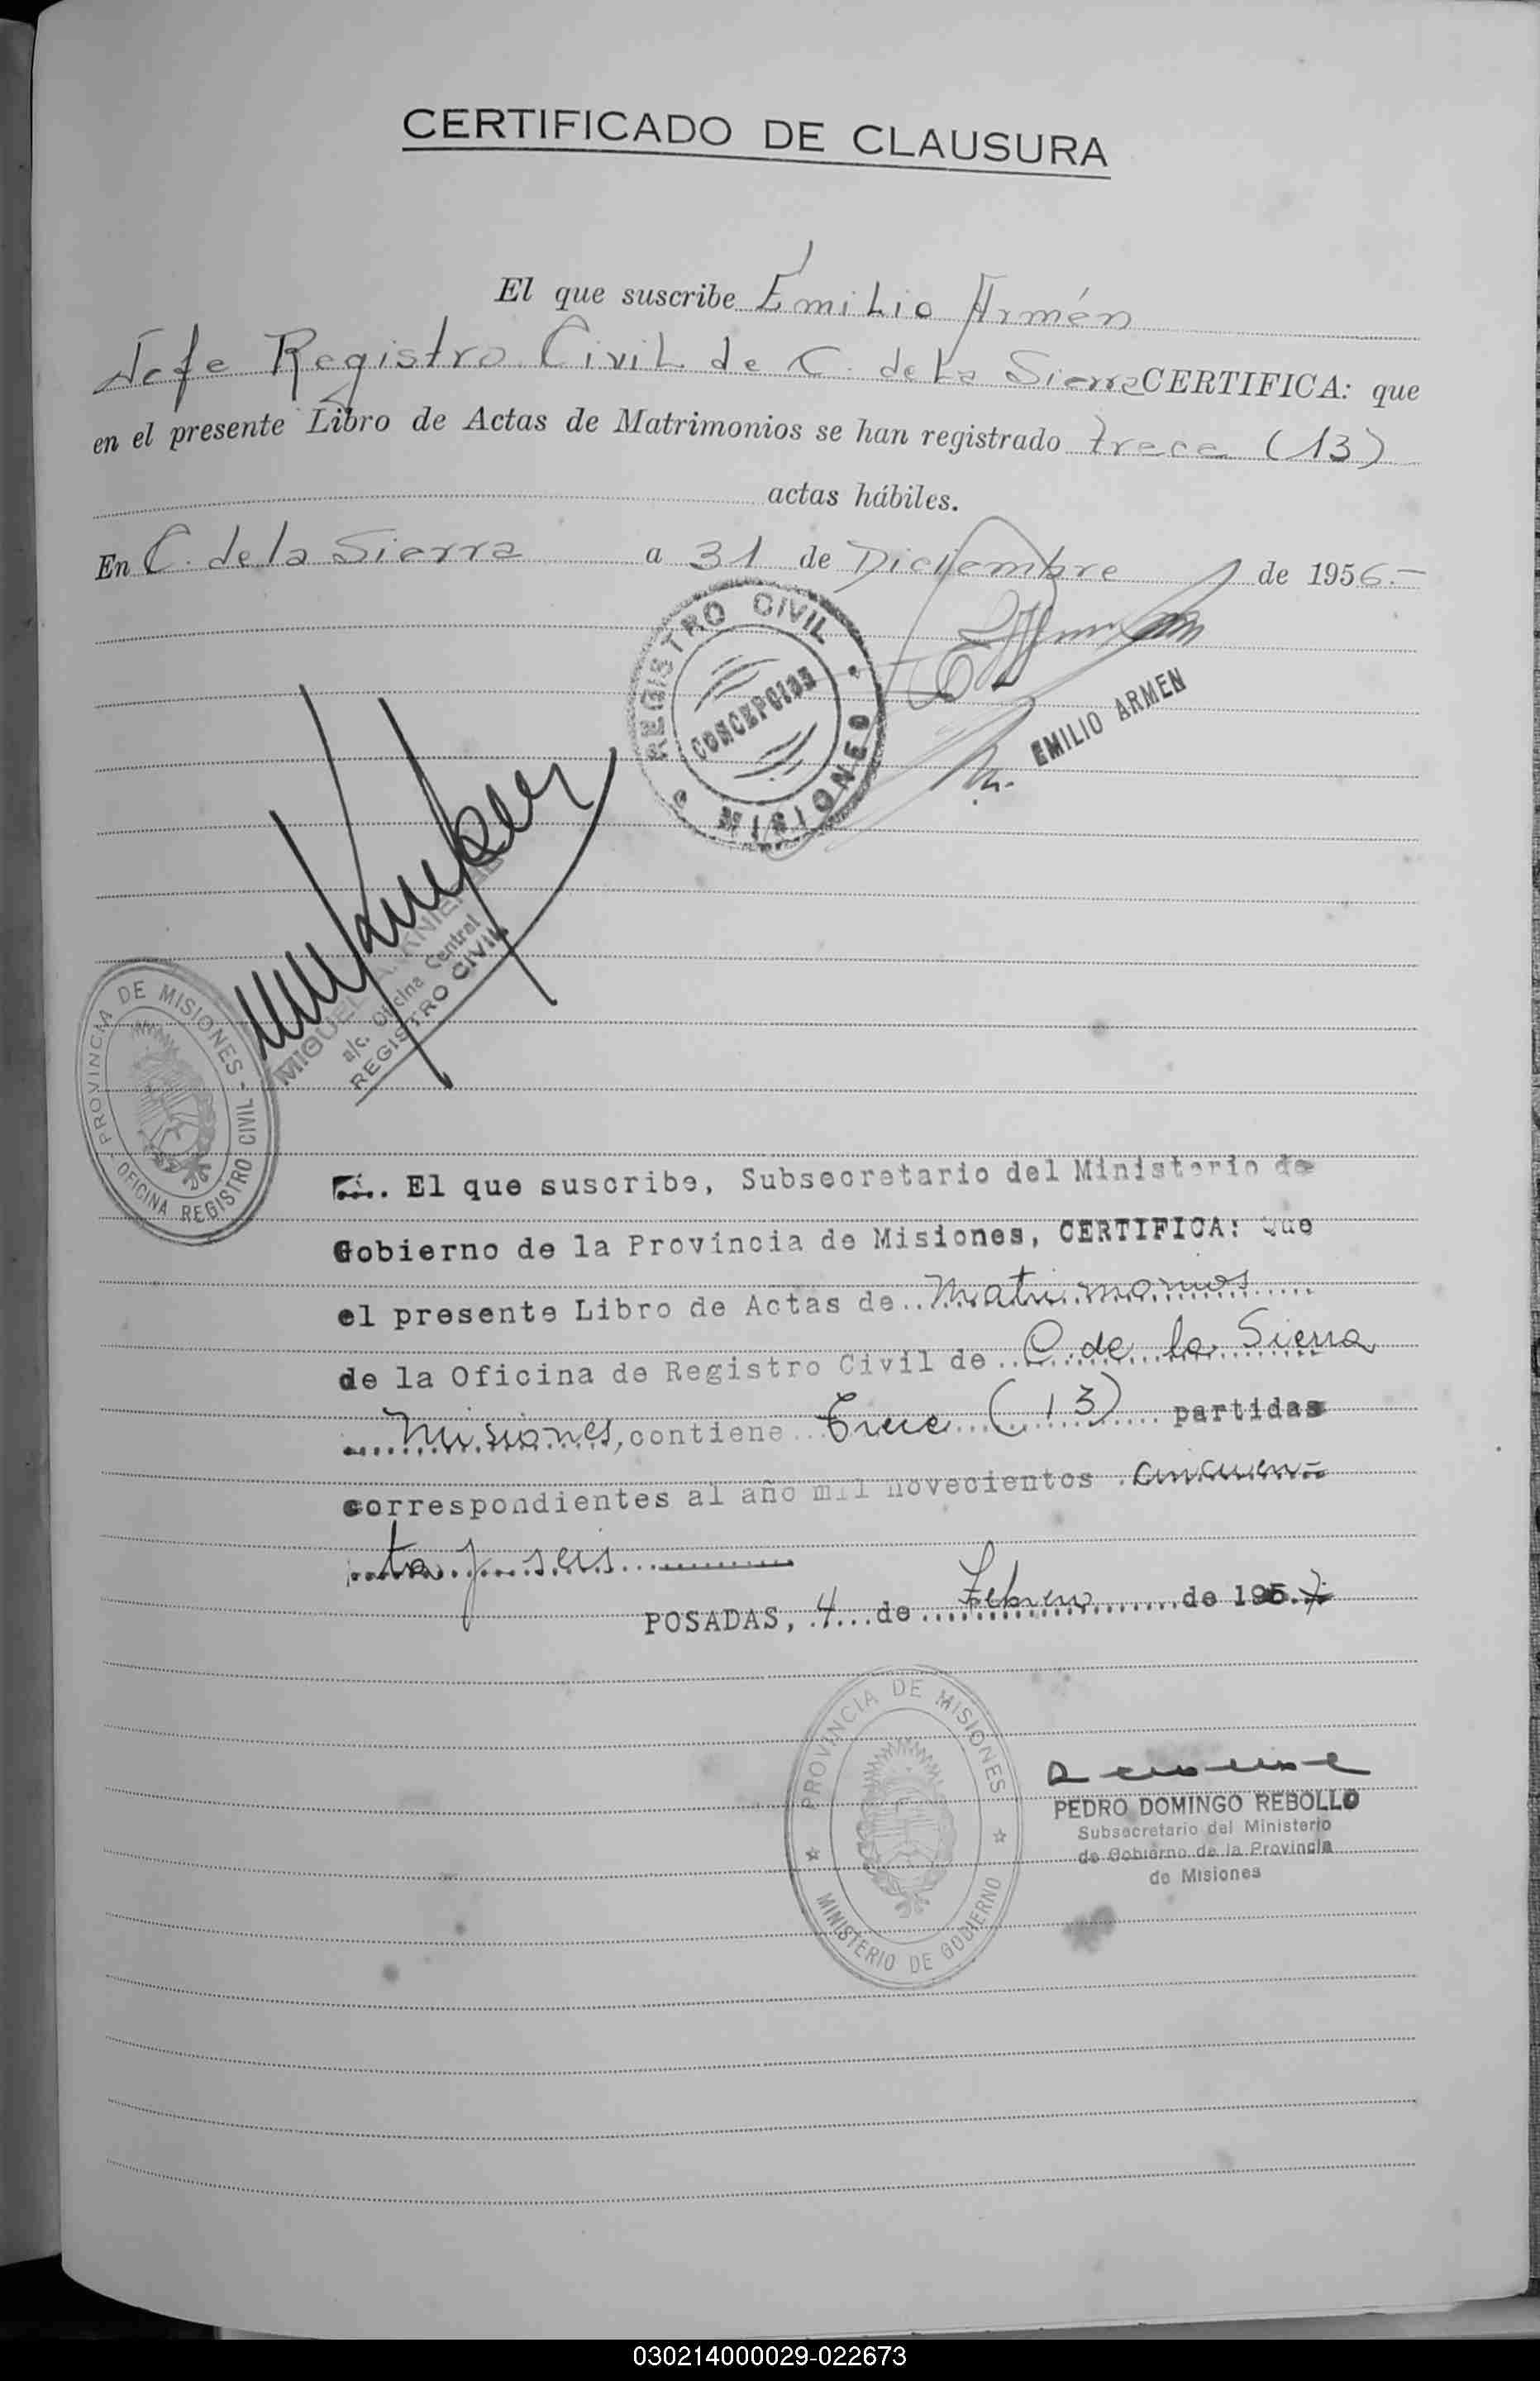 CERTIFICADO DE CLAUSURA
El que suscribe Emilio Armén
Jefe Registro Civil de C. de la Sierra CERTIFICA: que
en el presente Libro de Actas de Matrimonios se han registrado trece (13)
actas hábiles.
En C. de la Sierra a 31 de Diciembre de 1956.-
REGISTRO CIVIL
CONCEPCION
MISIONES
EMILIO ARMEN
MIGUEL A.
a/c. Oficina Central
REGISTRO CIVIL
PROVINCIA DE MISIONES -
OFICINA REGISTRO CIVIL -
El que suscribe, Subsecretario del Ministerio de
Gobierno de la Provincia de Misiones, CERTIFICA: Que
el presente Libro de Actas de..Matrimonios....
de la Oficina de Registro Civil de...C. de la Sierra
....Misiones, contiene..Trece...(13)....partidas
correspondientes al año mil novecientos .cincuen-
ta y seis
POSADAS, .4...de...Febrero......de 195.7.
PROVINCIA DE MISIONES
MINISTERIO DE GOBIERNO
PEDRO DOMINGO REBOLLO
Subsecretario del Ministerio
de Gobierno de la Provincia
de Misiones
030214000029-022673